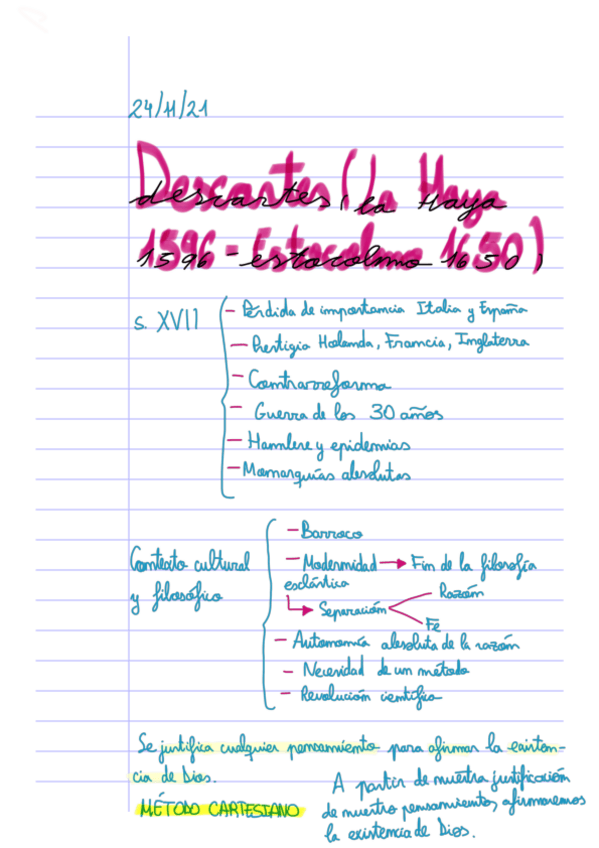 24/11/21
Descartes (La Haya
1596 - Estocolmo 1650)
s. XVII
- Pérdida de importancia Italia y España
- Prestigio Holanda, Francia, Inglaterra
- Contrarreforma
- Guerra de los 30 años
- Hambre y epidemias
- Monarquías absolutas
Contexto cultural
y filosófico
- Barroco
- Modernidad → Fin de la filosofía
esclástica
→ Separación
Razón
Fe
- Autonomía absoluta de la razón
- Necesidad de un método
- Revolución científica
Se justifica cualquier pensamiento para afirmar la existen-
cia de Dios.
MÉTODO CARTESIANO
A partir de nuestra justificación
de nuestro pensamiento, afirmaremos
la existencia de Dios.